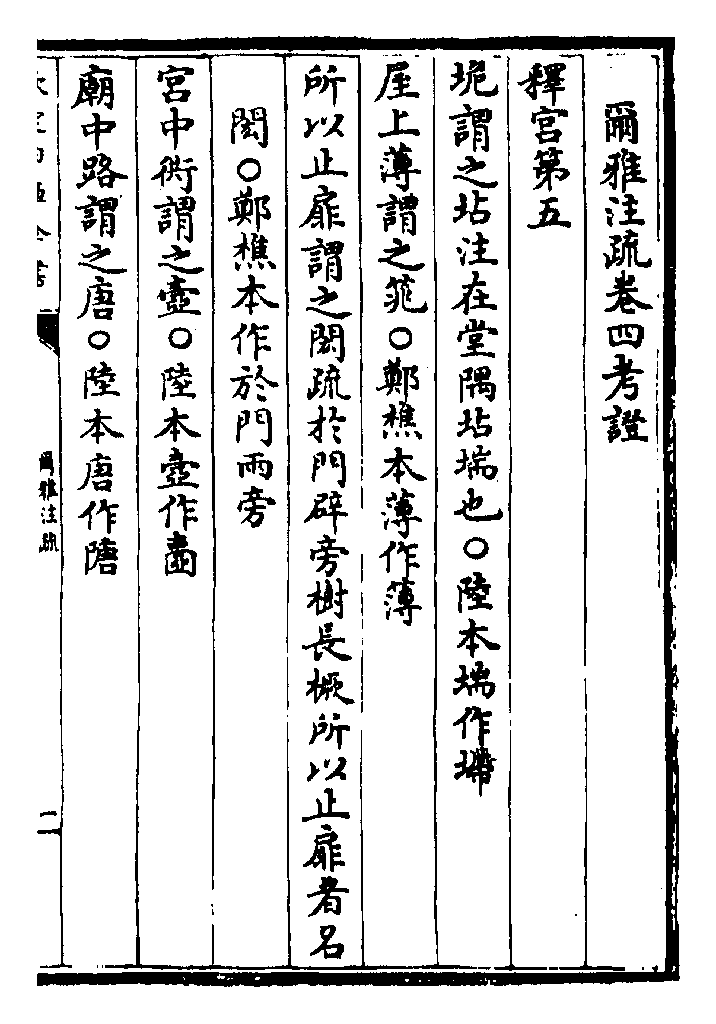 爾雅注疏卷四考證
釋宮第五
垝謂之坫注在堂隅坫端也○陸本端作墆
屋上薄謂之筄○鄭樵本薄作簿
所以止扉謂之閎疏於門辟旁樹長橛所以止扉者名
閎○鄭樵本作於門兩旁
宮中衖謂之壼○陸本壼作𡈦
廟中路謂之唐○陸本唐作隚
爾雅注疏
二